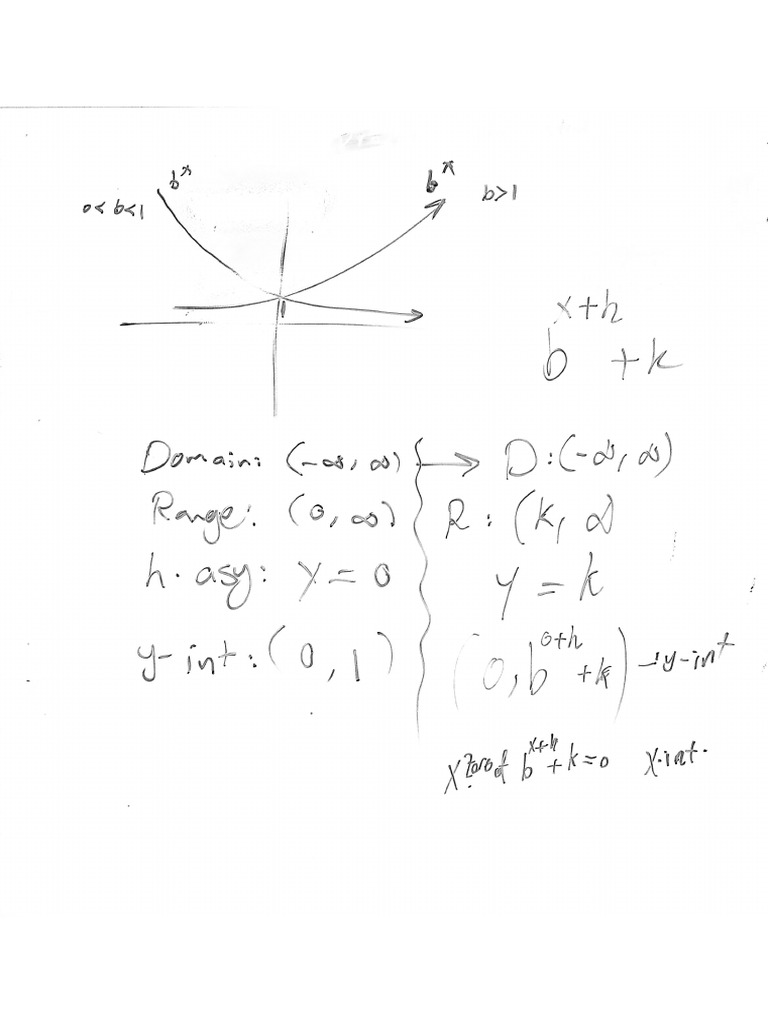 bˣ bˣ
0<b<1 b>1
1
b^(x+h) + k
Domain: (-∞, ∞) → D: (-∞, ∞)
Range: (0, ∞) R: (k, ∞)
h. asy: y = 0 y = k
y-int: (0, 1) (0, b^(0+h) + k) → y-int
x zero of b^(x+h) + k = 0 x-int.